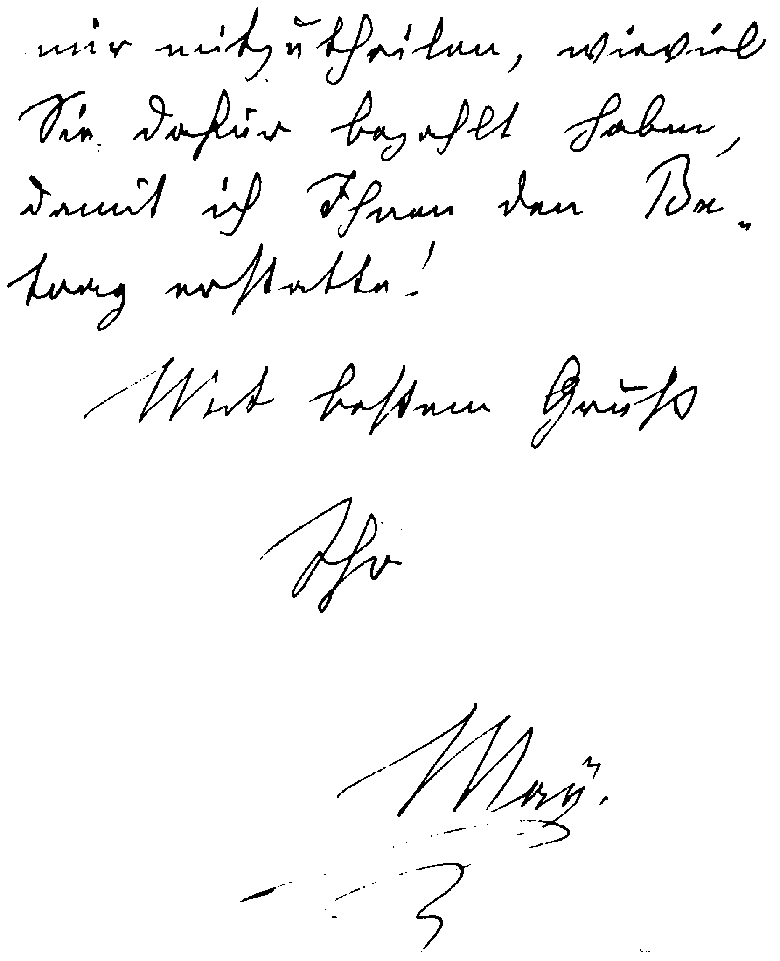 mir mitzutheilen, wieviel
Sie dafür bezahlt haben,
damit ich Ihnen den Be-
trag erstatte!
Mit bestem Gruß
Ihr
May.